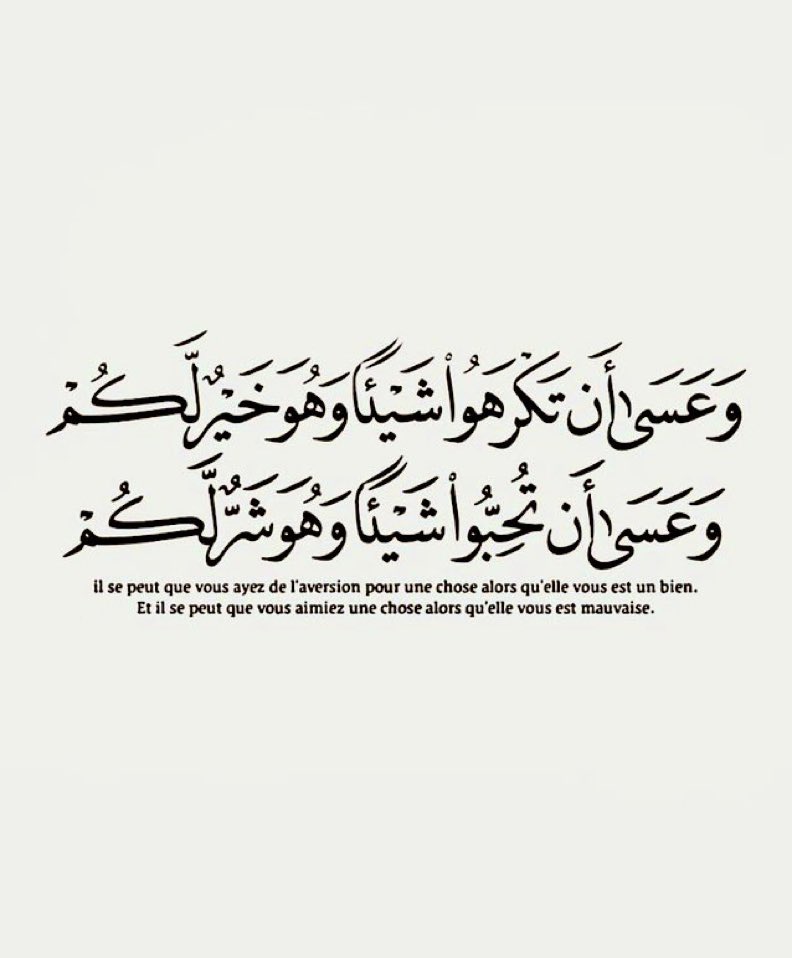 وَعَسَىٰ أَن تَكْرَهُوا۟ شَيْـًٔا وَهُوَ خَيْرٌ لَّكُمْ
وَعَسَىٰ أَن تُحِبُّوا۟ شَيْـًٔا وَهُوَ شَرٌّ لَّكُمْ
il se peut que vous ayez de l'aversion pour une chose alors qu'elle vous est un bien.
Et il se peut que vous aimiez une chose alors qu'elle vous est mauvaise.